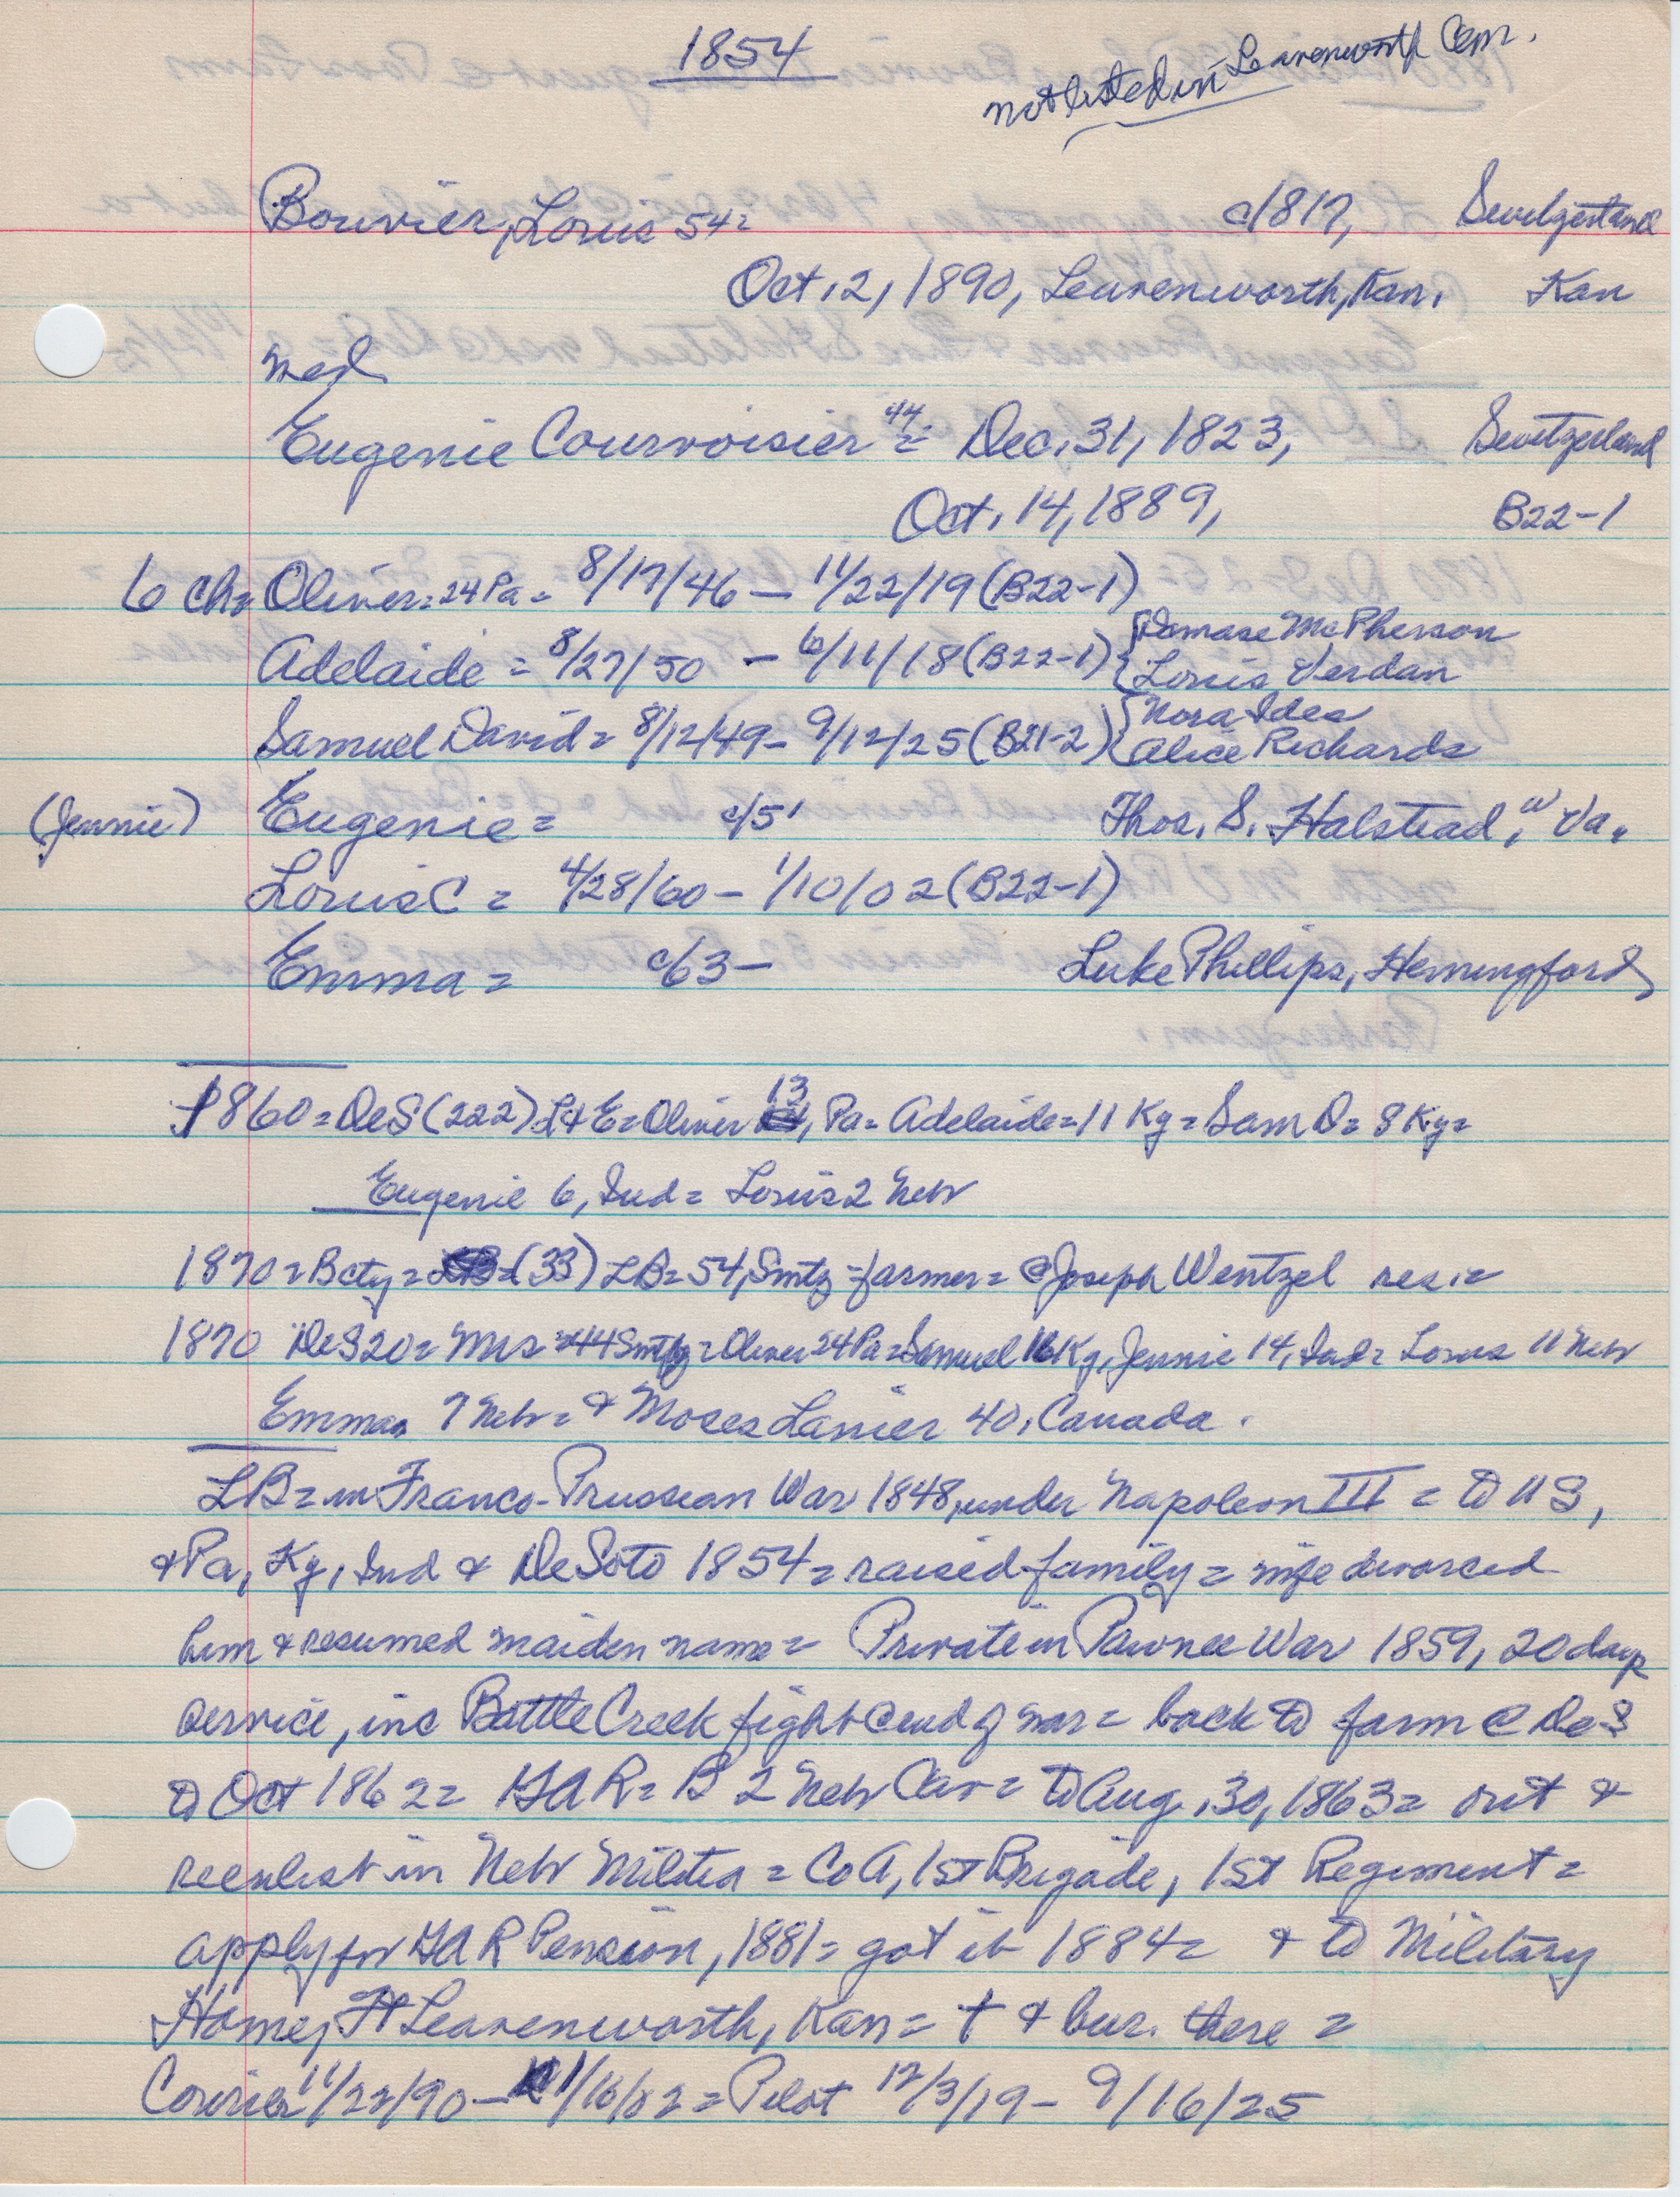 1854
not listed in Leavenworth Cem.
Bouvier, Louis 54= c/1817, Switzerland
Oct. 2, 1890, Leavenworth, Kan. Kan
med
Eugenie Courvoisier 44 = Dec. 31, 1823, Switzerland
Oct. 14, 1889, B22-1
6 ch= Oliver= 24 Pa = 8/17/46 — 11/22/19 (B22-1)
Adelaide = 8/27/50 — 6/11/18 (B22-1) { Damase McPherson
Louis Verdan
Samuel David = 8/12/49 - 9/12/25 (B21-2) { Nora Ides
Alice Richards
(Jennie) Eugenie = c/51 Thos. S. Halstead, W Va.
Louis C = 4/28/60 - 1/10/02 (B22-1)
Emma = c/63 — Luke Phillips, Hemingford
1860 = DeS (222) L+E = Oliver 13, Pa = Adelaide = 11 Ky = Sam D = 8 Ky =
Eugenie 6, Ind = Louis 2 Neb
1870 = B cty = (33) LB = 54, Swtz - farmer = @ Joseph Wentzel res. =
1870 DeS 20 = Mrs = 44 Swtz = Oliver 24 Pa = Samuel 16 Ky, Jennie 14, Ind = Louis 11 Neb
Emma 7 Neb = & Moses Lanier 40, Canada.
LB = in Franco-Prussian War 1848, under Napoleon III = to US,
& Pa, Ky, Ind & DeSoto 1854 = raised family = wife divorced
him & resumed maiden name = Private in Pawnee War 1859, 20 days
service, inc Battle Creek fight @ end of war = back to farm @ DeS
to Oct 1862 = GAR = B 2 Neb Cav = to Aug. 30, 1863 = out &
reenlist in Neb Militia = Co A, 1st Brigade, 1st Regiment =
apply for GAR Pension, 1881 = got it 1884 = & to Military
Home, Ft Leavenworth, Kan = † & bur. there =
Courier 11/22/90 - 1/16/02 = Pilot 12/3/19 - 9/16/25